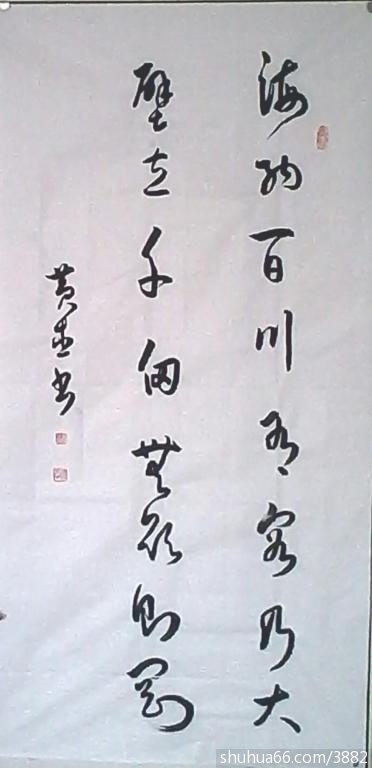 海纳百川有容乃大
壁立千仞無欲则剛
黄 书
shuhua66.com/3882